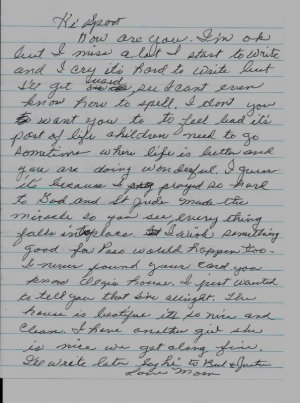 Hi Spoot
How are you. I'm ok
but I miss alot I start to write
and I cry it's hard to write but
I'll get see I cant even
know how to spell. I dont you
to want you to to feel bad it's
part of life children need to go
sometime where life is better and
you are doing wonderful. I guess
it's because I pray prayed so hard
to God and St Jude made the
miracle so you see every thing
falls into place. I wish something
good for Paso would happen too -
I never found your card you
know house. I just wanted
to tell you that I'm allright. The
house is beatifue it's so nice and
clean. I have another girl she
is nice we get along fine.
I'll write later. Say hi to Bud & Justin
Love Mom